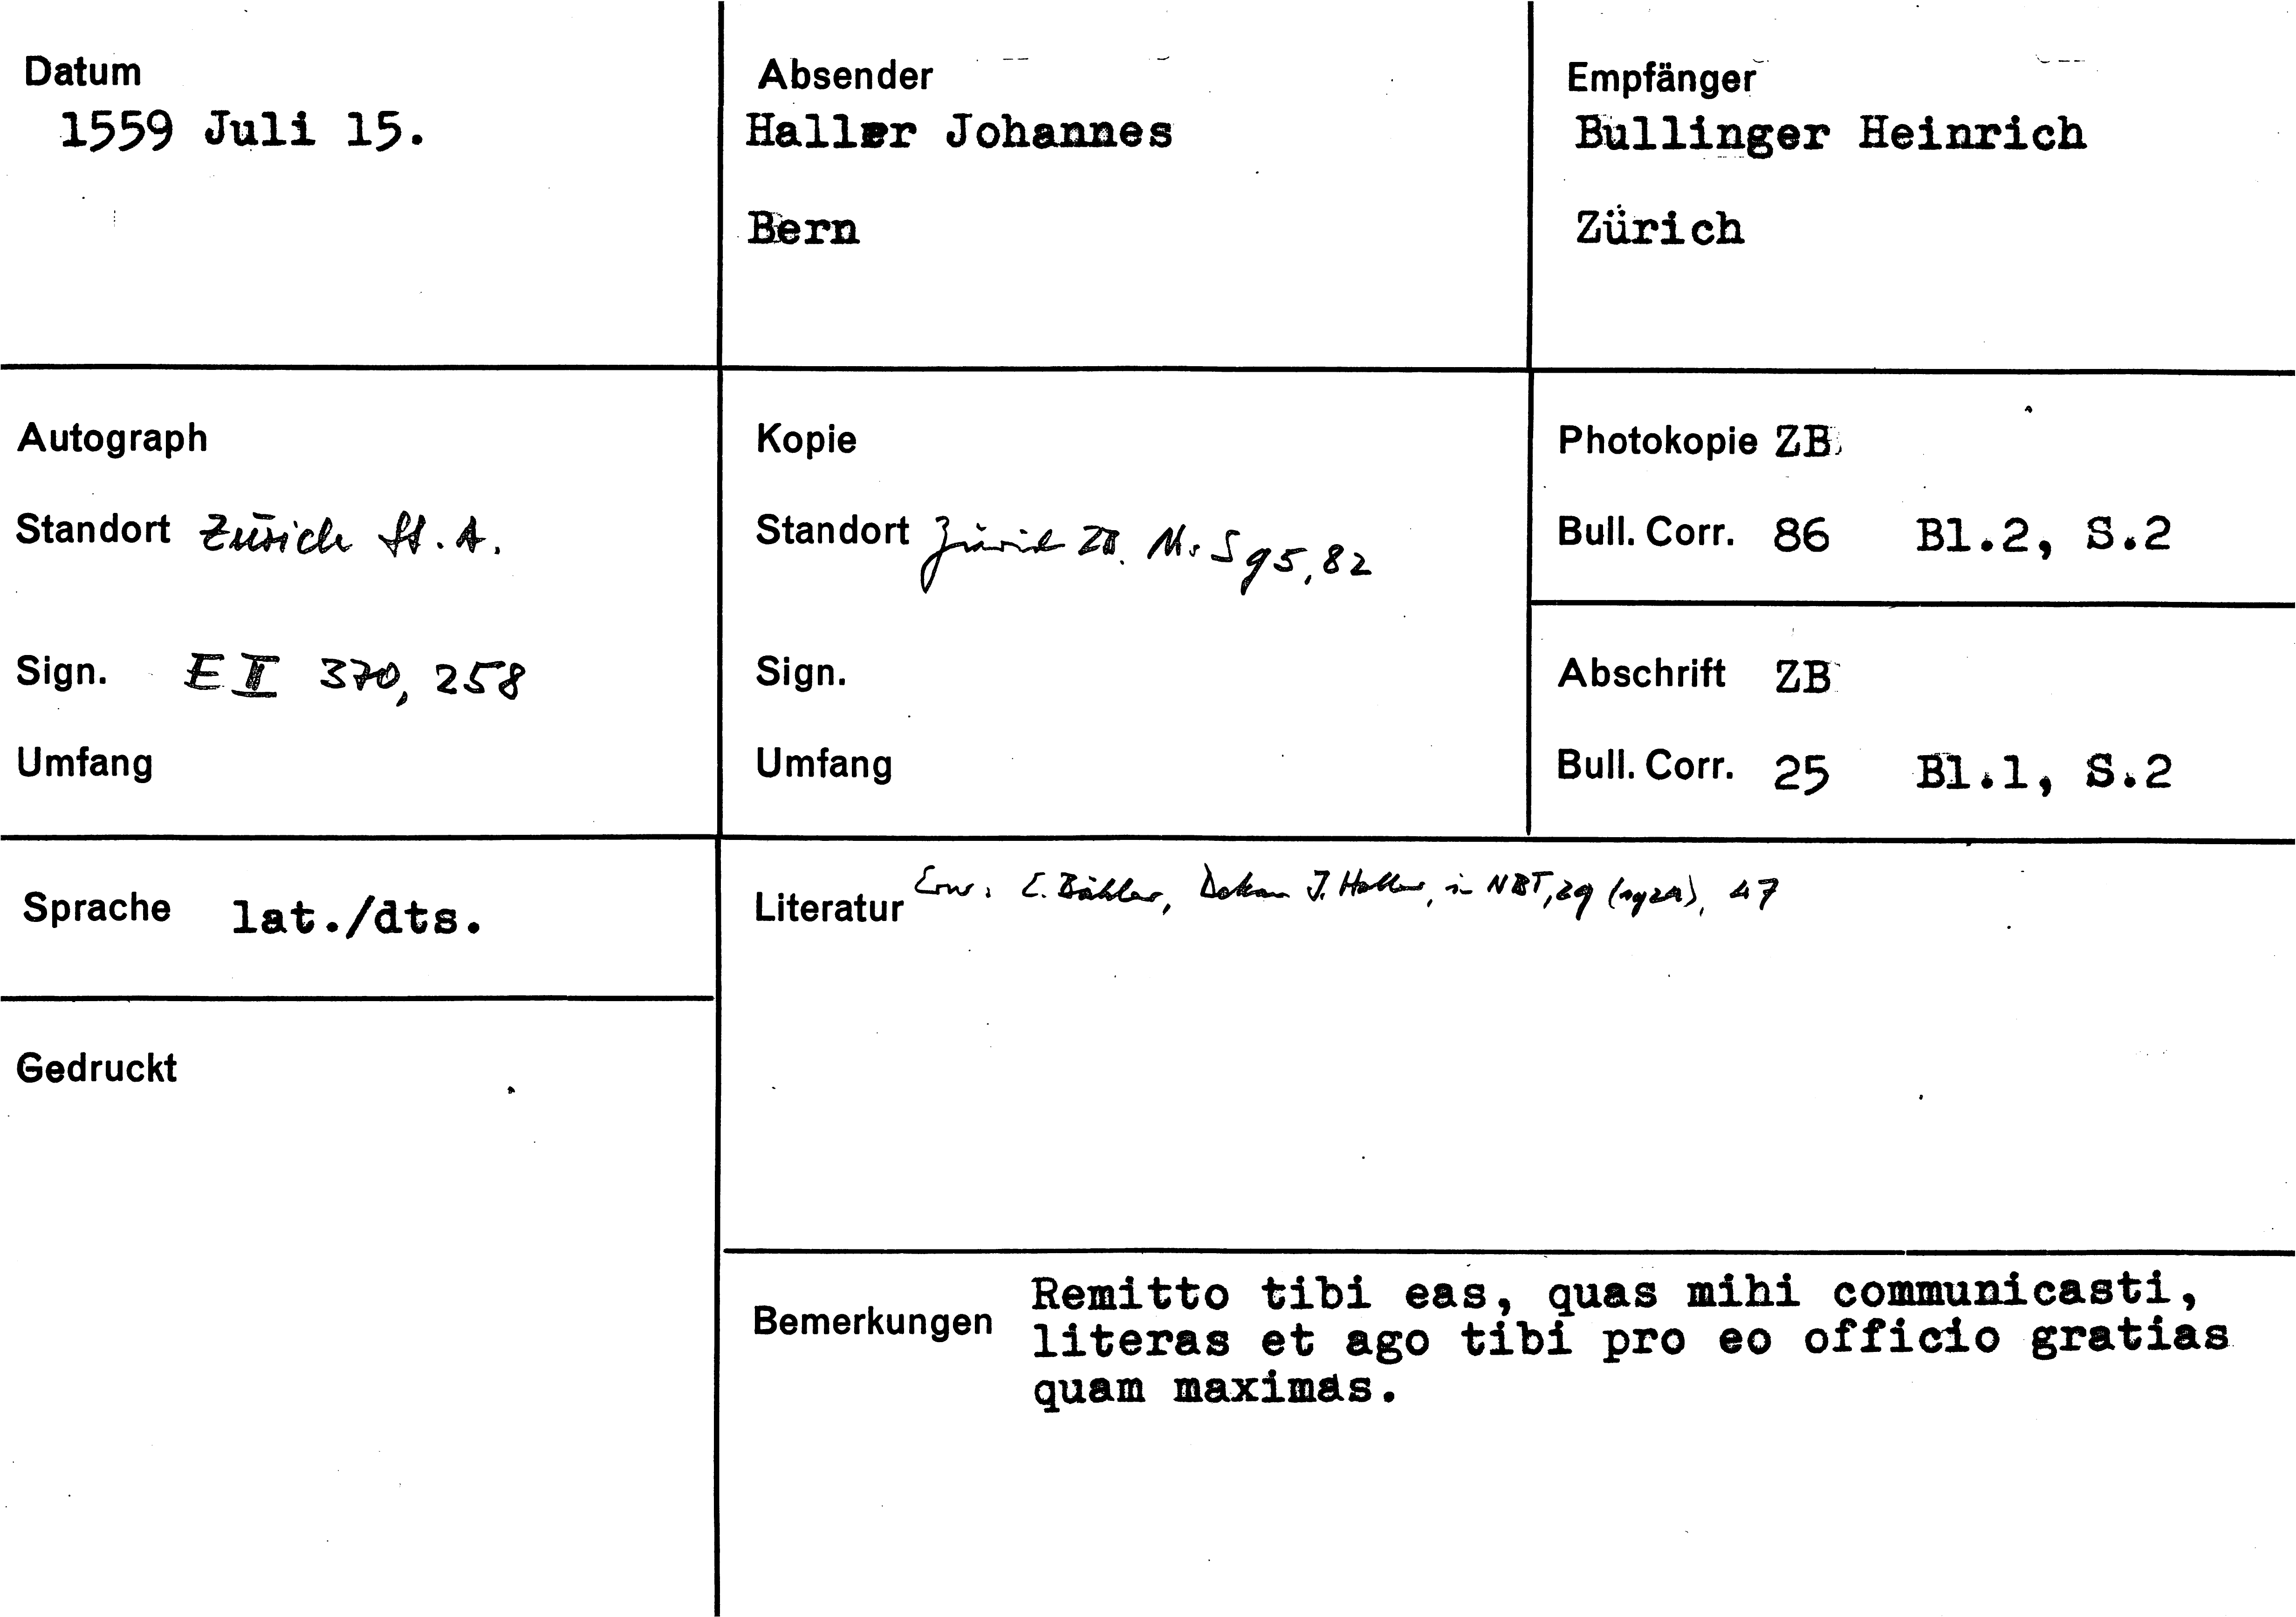 Datum
1559 Juli 15.
Absender
Haller Johannes
Bern
Empfänger
Bullinger Heinrich
Zürich
Autograph
Standort Zürich St.A.
Sign. E II 370, 258
Umfang
Kopie
Standort Zürich ZB. Ms S 95, 82
Sign.
Umfang
Photokopie ZB
Bull. Corr. 86 Bl.2, S.2
Abschrift ZB
Bull. Corr. 25 Bl.1, S.2
Sprache lat./dts.
Gedruckt
Literatur Erw: E. Bähler, Dekan J. Haller, in NBT, 29 , 47
Bemerkungen Remitto tibi eas, quas mihi communicasti,
literas et ago tibi pro eo officio gratias
quam maximas.